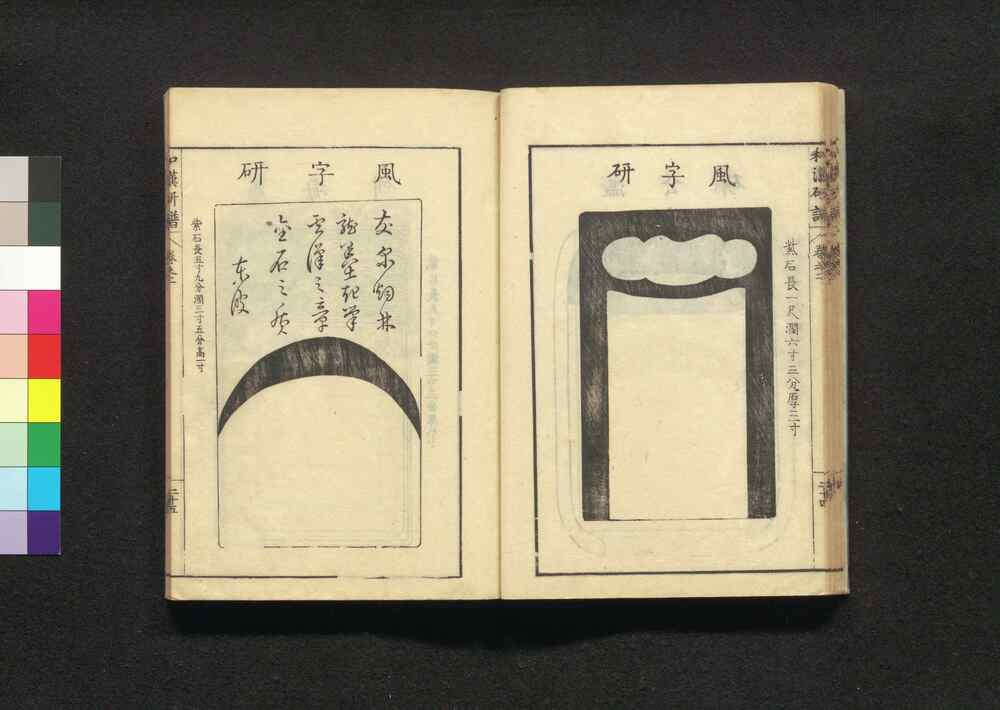 風字研
紫石長一尺濶六寸三分厚二寸
和漢研譜
卷之二
二十四
風字研
雲漢之章
金石之質
東坡
紫石長五寸九分濶三寸五分高一寸
和漢研譜
卷之二
二十五